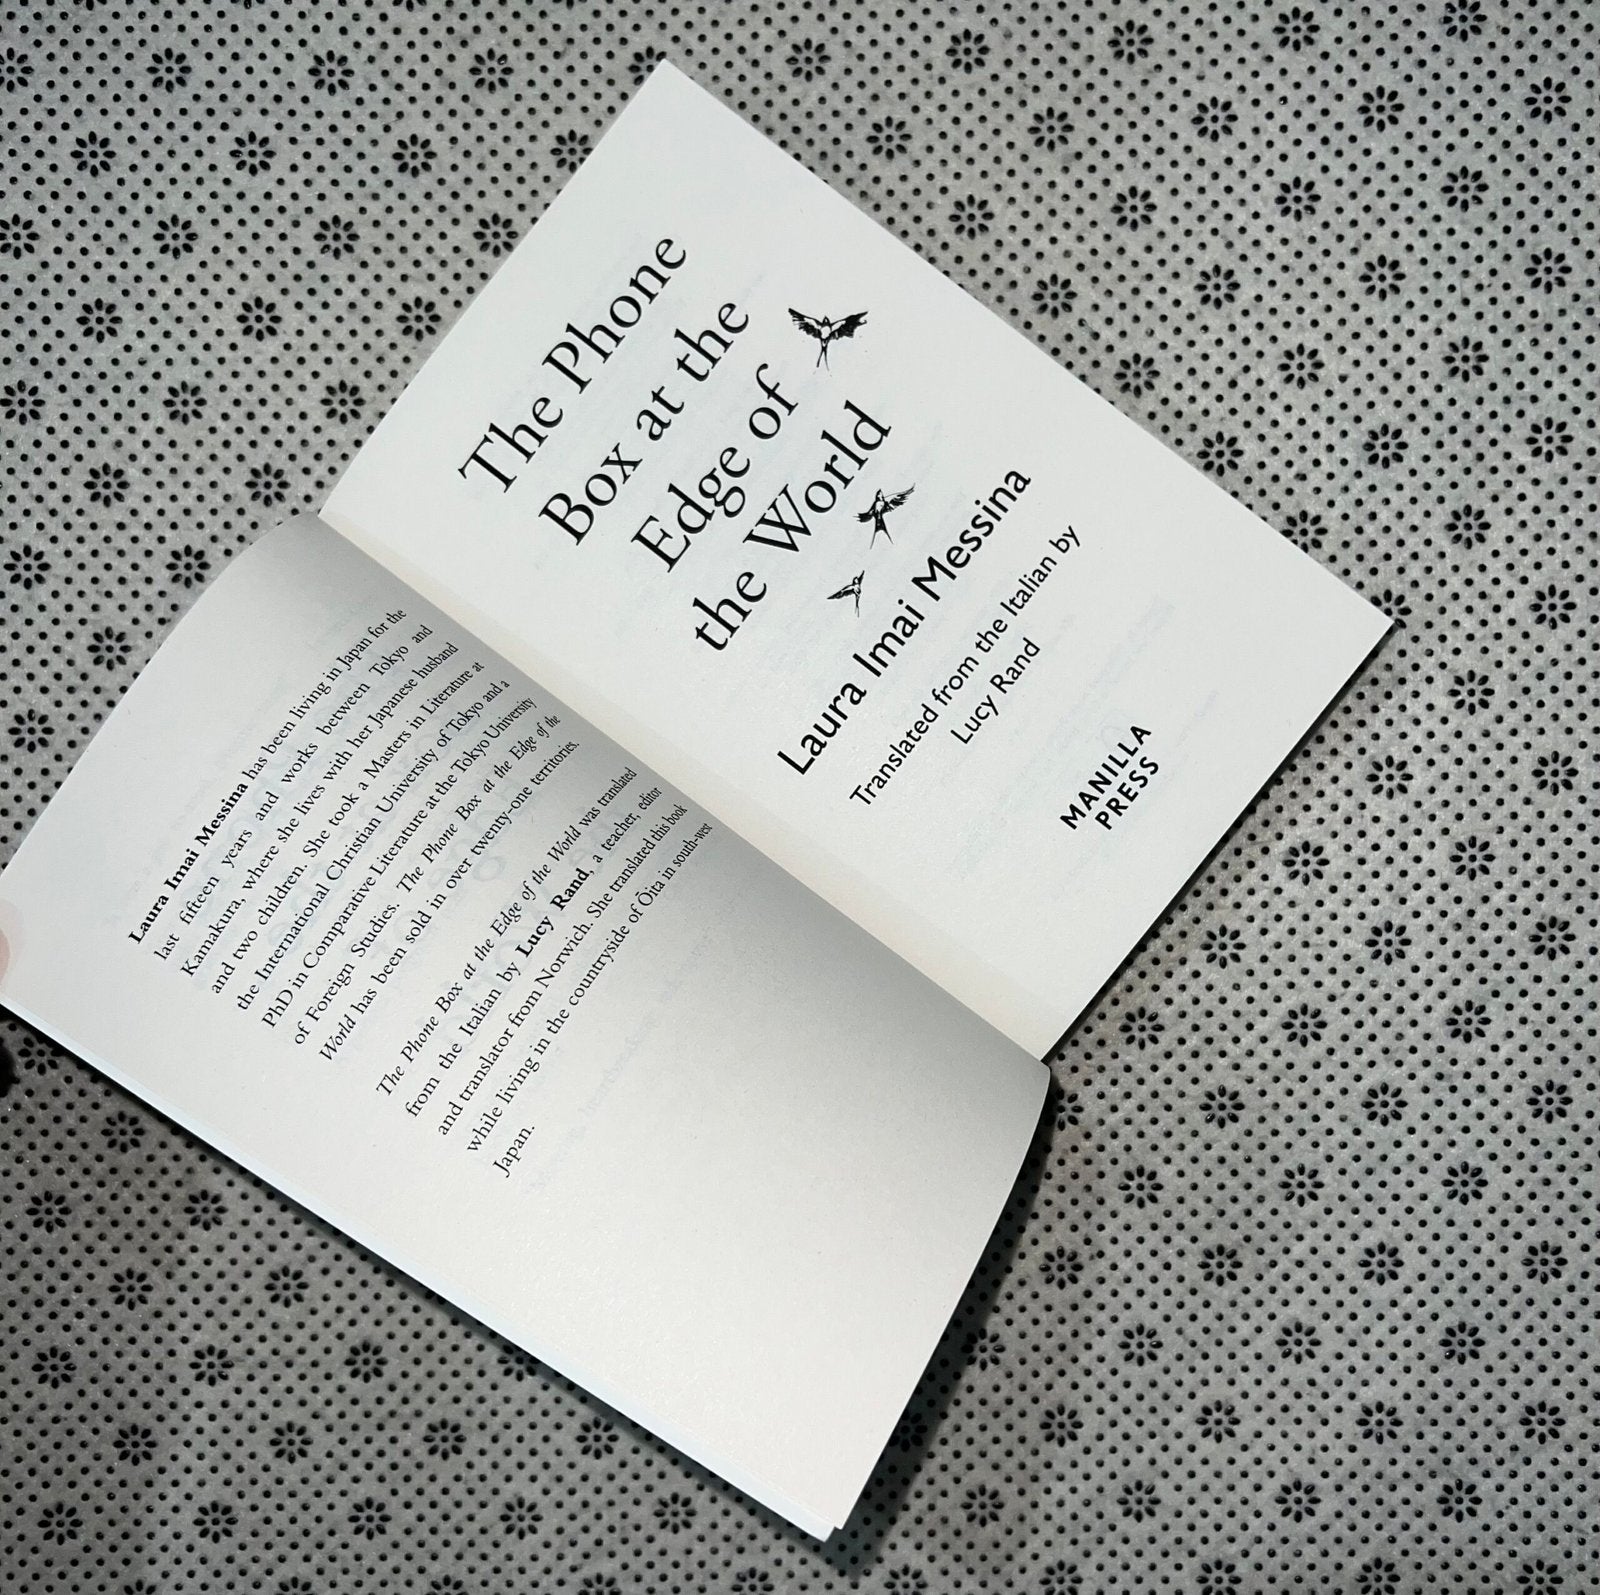 Laura Imai Messina has been living in Japan for the
last fifteen years and works between Tokyo and
Kamakura, where she lives with her Japanese husband
and two children. She took a Masters in Literature at
the International Christian University of Tokyo and a
PhD in Comparative Literature at the Tokyo University
of Foreign Studies. The Phone Box at the Edge of the
World has been sold in over twenty-one territories.
The Phone Box at the Edge of the World was translated
from the Italian by Lucy Rand, a teacher, editor
and translator from Norwich. She translated this book
while living in the countryside of Ōita in south-west
Japan.
The Phone
Box at the
Edge of
the World
Laura Imai Messina
Translated from the Italian by
Lucy Rand
MANILLA
PRESS